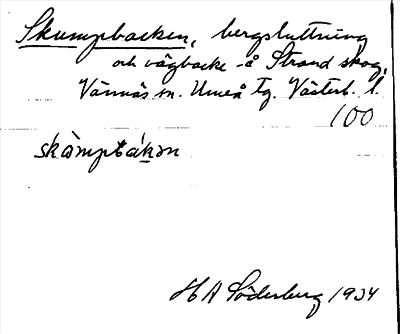 Skumpbacken, bergsluttning
och vägbacke å Strand skog,
Vännäs sn. Umeå tg. Västerb. l.
100
skòmpbákɒn
H A Söderberg 1934